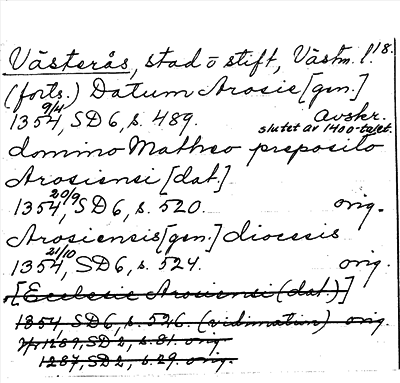 Västerås, stad o stift, Västm. l. 18.
(forts.) Datum Arosie [gen.]
9/4 1354, SD 6, s. 489. Avskr.
slutet av 1400-talet.
domino Matheo preposito
Arosiensi [dat.]
20/9 1354, SD 6, s. 520. orig.
Arosiensis [gen.] diocesis
21/10 1354, SD 6, s. 524. orig.
[Ecclesie Arosiensi (dat.)]
1354 SD 6, s. 526. (vidimation) orig.
1289, SD 2, s. 81. orig.
1287, SD 2, s. 29. orig.